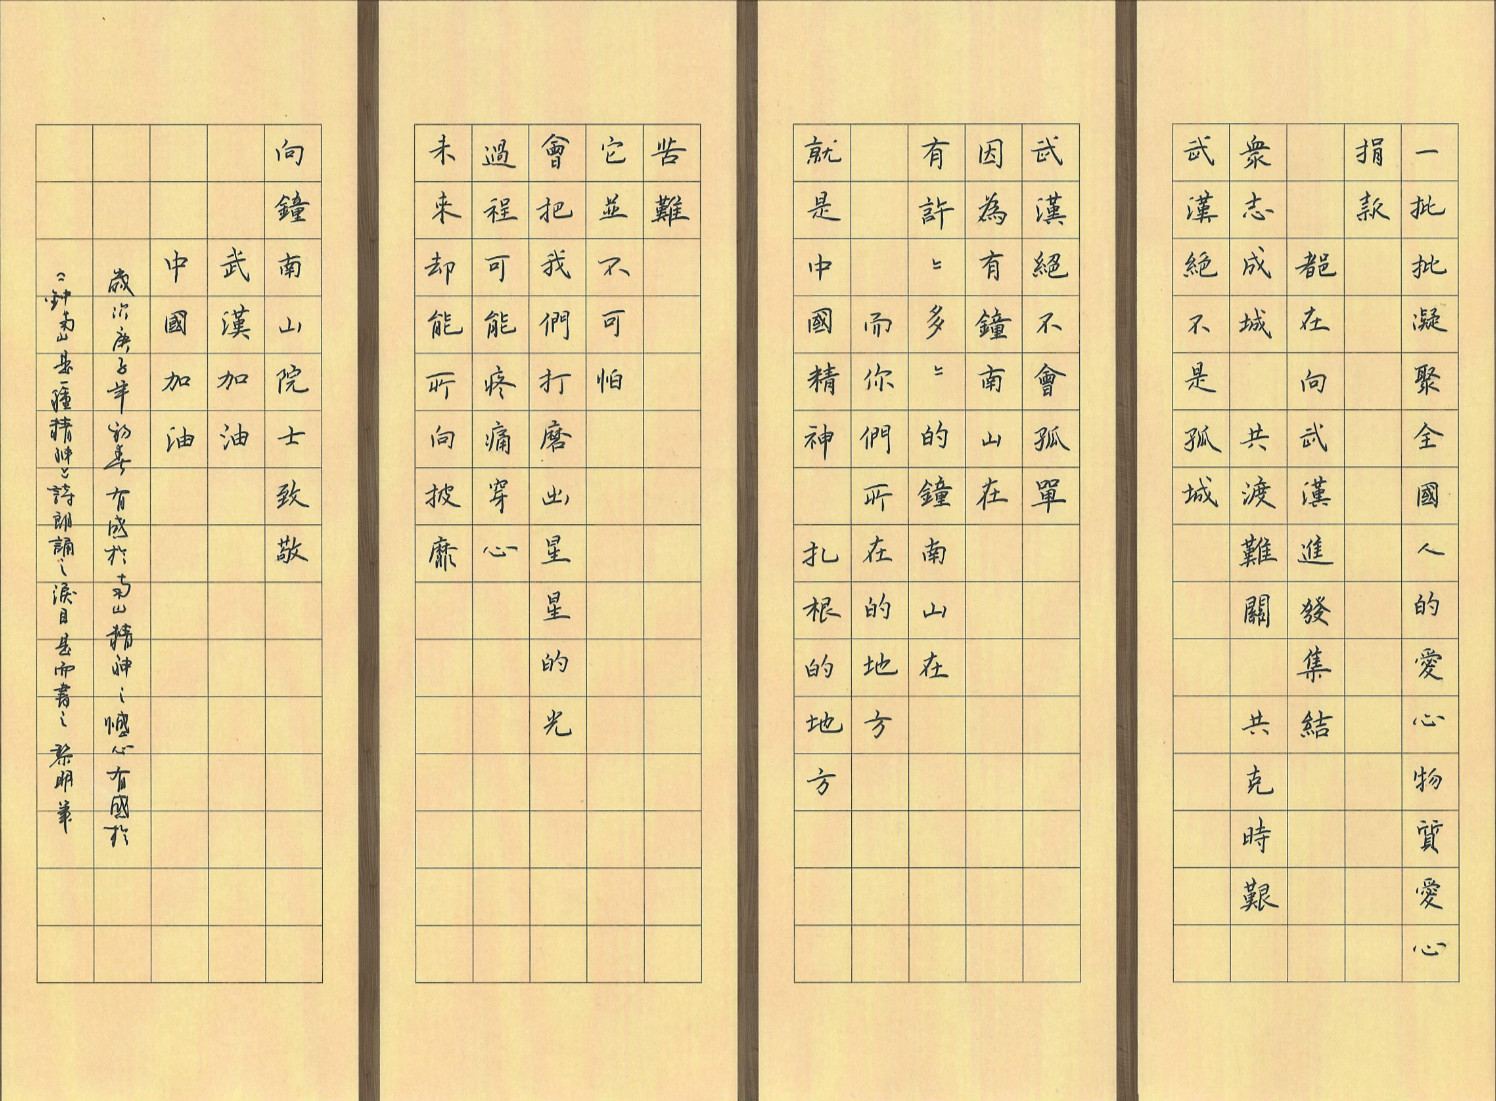 一批批凝聚全國人的愛心物質愛心
捐款
都在向武漢進發集結
衆志成城 共渡難關 共克時艱
武漢絕不是孤城
武漢絕不會孤單
因為有鐘南山在
有許〻多〻的鐘南山在
而你們所在的地方
就是中國精神 扎根的地方
苦難
它並不可怕
會把我們打磨出星星的光
過程可能疼痛穿心
未來却能所向披靡
向鐘南山院士致敬
武漢加油
中國加油
歲次庚子年初春有感於南山精神之憾心有國於
〝鈡南山是一種精神〞詩朗誦之淚目是而書之 黎明筆